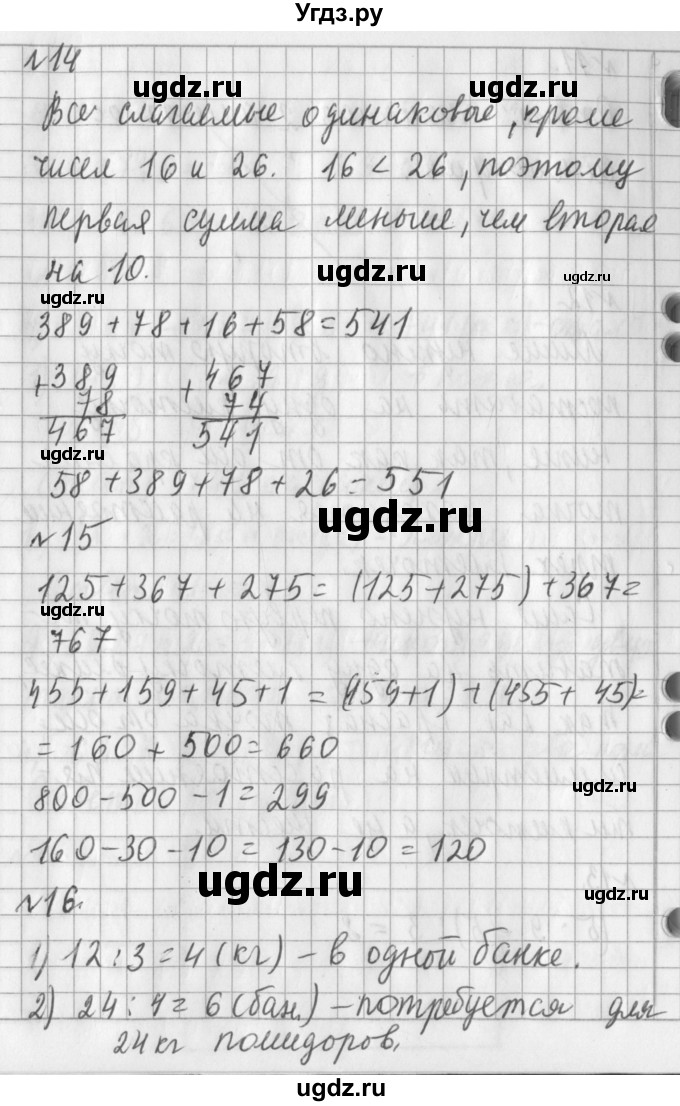 Угдз.ру
№14
ugdz.ru ugdz.ru
Все слагаемые одинаковые, кроме
чисел 16 и 26. 16 < 26, поэтому
первая сумма меньше, чем вторая
на 10.
ugdz.ru ugdz.ru
ugdz.ru
389 + 78 + 16 + 58 = 541
+389 +467
78 74
467 541
ugdz.ru ugdz.ru
58 + 389 + 78 + 26 = 551
ugdz.ru
№15
125 + 367 + 275 = (125 + 275) + 367 =
ugdz.ru
767
455 + 159 + 45 + 1 = (159 + 1) + (455 + 45) =
= 160 + 500 = 660
800 - 500 - 1 = 299
ugdz.ru
160 - 30 - 10 = 130 - 10 = 120
ugdz.ru
№16.
1) 12 : 3 = 4 (кг) - в одной банке.
2) 24 : 4 = 6 (бан.) - потребуется для
24 кг помидоров.
ugdz.ru